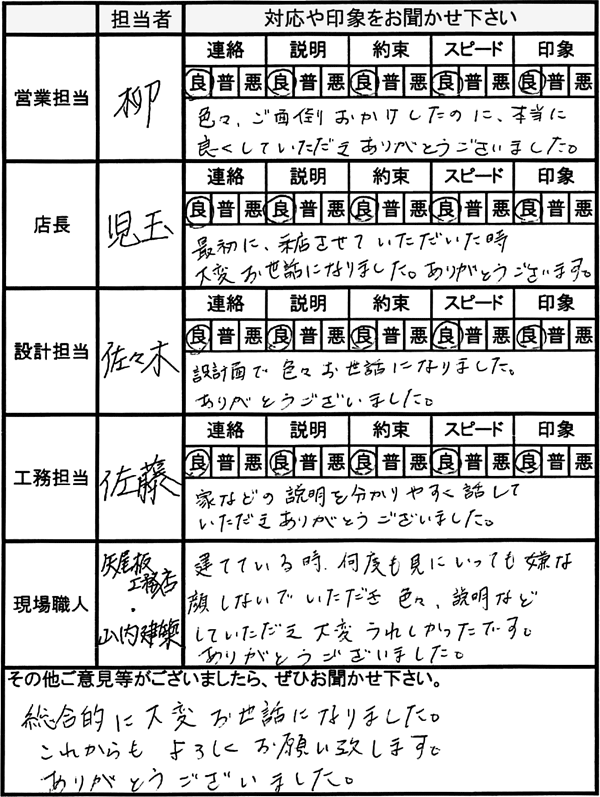 担当者 対応や印象をお聞かせ下さい
営業担当 柳
連絡 説明 約束 スピード 印象
良 普 悪 良 普 悪 良 普 悪 良 普 悪 良 普 悪
色々、ご面倒おかけしたのに、本当に
良くしていただきありがとうございました。
店長 児玉
連絡 説明 約束 スピード 印象
良 普 悪 良 普 悪 良 普 悪 良 普 悪 良 普 悪
最初に、来店させていただいた時
大変お世話になりました。ありがとうございます。
設計担当 佐々木
連絡 説明 約束 スピード 印象
良 普 悪 良 普 悪 良 普 悪 良 普 悪 良 普 悪
設計面で色々お世話になりました。
ありがとうございました。
工務担当 佐藤
連絡 説明 約束 スピード 印象
良 普 悪 良 普 悪 良 普 悪 良 普 悪 良 普 悪
家などの説明を分かりやすく話して
いただきありがとうございました。
現場職人
矢尾板
工務店
・
山内建築
建てている時、何度も見にいっても嫌な
顔しないでいただき色々、説明など
していただき大変うれしかったです。
ありがとうございました。
その他ご意見等がございましたら、ぜひお聞かせ下さい。
総合的に大変お世話になりました。
これからもよろしくお願い致します。
ありがとうございました。